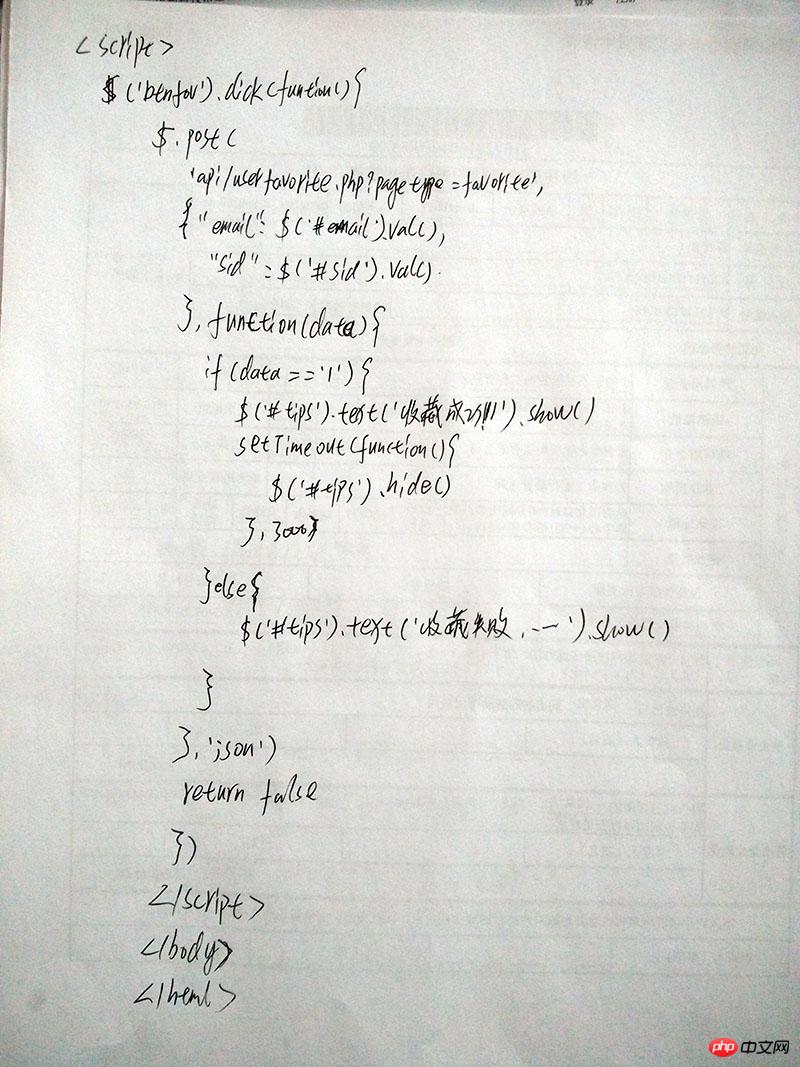 <script>
$('btnfav').click(funtion(){
$.post(
'api/userfavorite.php?pagetype=favorite',
{"email": $('#email').val(),
"sid"=$('#sid').val()
}, function(data){
if(data=='1'){
$('#tips').text('收藏成功!!!').show()
setTimeout(function(){
$('#tips').hide()
},3000)
}else{
$('#tips').text('收藏失败,一一').show()
}
},'json')
return false
})
</script>
</body>
</html>
php 中文网